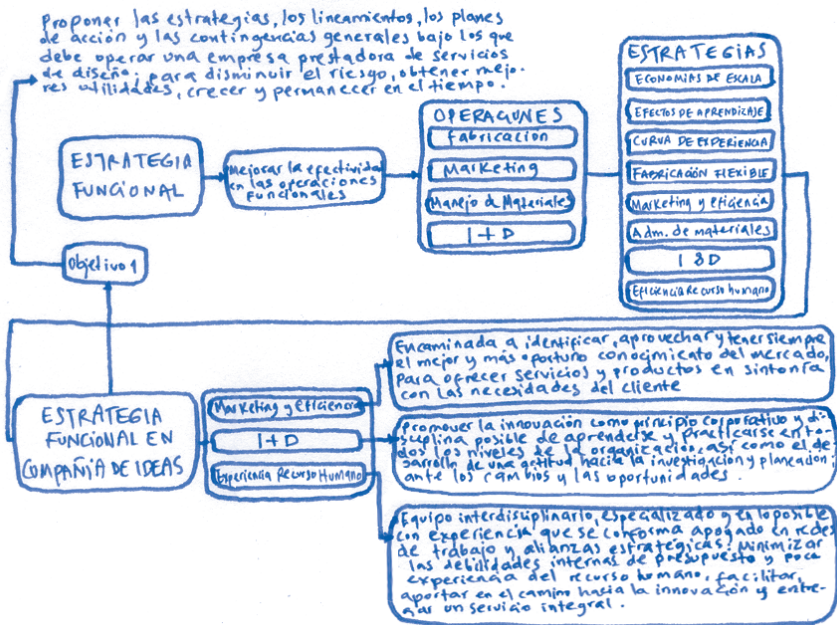 Proponer las estrategias, los lineamientos, los planes
de acción y las contingencias generales bajo los que
debe operar una empresa prestadora de servicios
de diseño; para disminuir el riesgo, obtener mejo-
res utilidades, crecer y permanecer en el tiempo.
ESTRATEGIA
FUNCIONAL
Mejorar la efectividad
en las operaciones
funcionales
OPERACIONES
Fabricación
Marketing
Manejo de Materiales
I + D
ESTRATEGIAS
ECONOMIAS DE ESCALA
EFECTOS DE APRENDIZAJE
CURVA DE EXPERIENCIA
FABRICACIÓN FLEXIBLE
Marketing y eficiencia
Adm. de materiales
I & D
Eficiencia Recurso humano
Objetivo 1
ESTRATEGIA
FUNCIONAL EN
COMPAÑIA DE IDEAS
Marketing y Eficiencia
I + D
Experiencia Recurso Humano
Encaminada a identificar, aprovechar y tener siempre
el mejor y más oportuno conocimiento del mercado,
para ofrecer servicios y productos en sintonía
con las necesidades del cliente
Promover la innovación como principio corporativo y di-
suplina posible de aprenderse y practicarse en to-
dos los niveles de la organización; así como el de-
sarrollo de una actitud hacia la investigación y planeación;
ante los cambios y las oportunidades.
Equipo interdisciplinario, especializado y en lo posible
con experiencia que se conforma apoyado en redes
de trabajo y alianzas estratégicas. Minimizar
las debilidades internas de presupuesto y poca
experiencia del recurso humano, facilitar,
aportar en el camino hacia la innovación y entre-
gar un servicio integral.